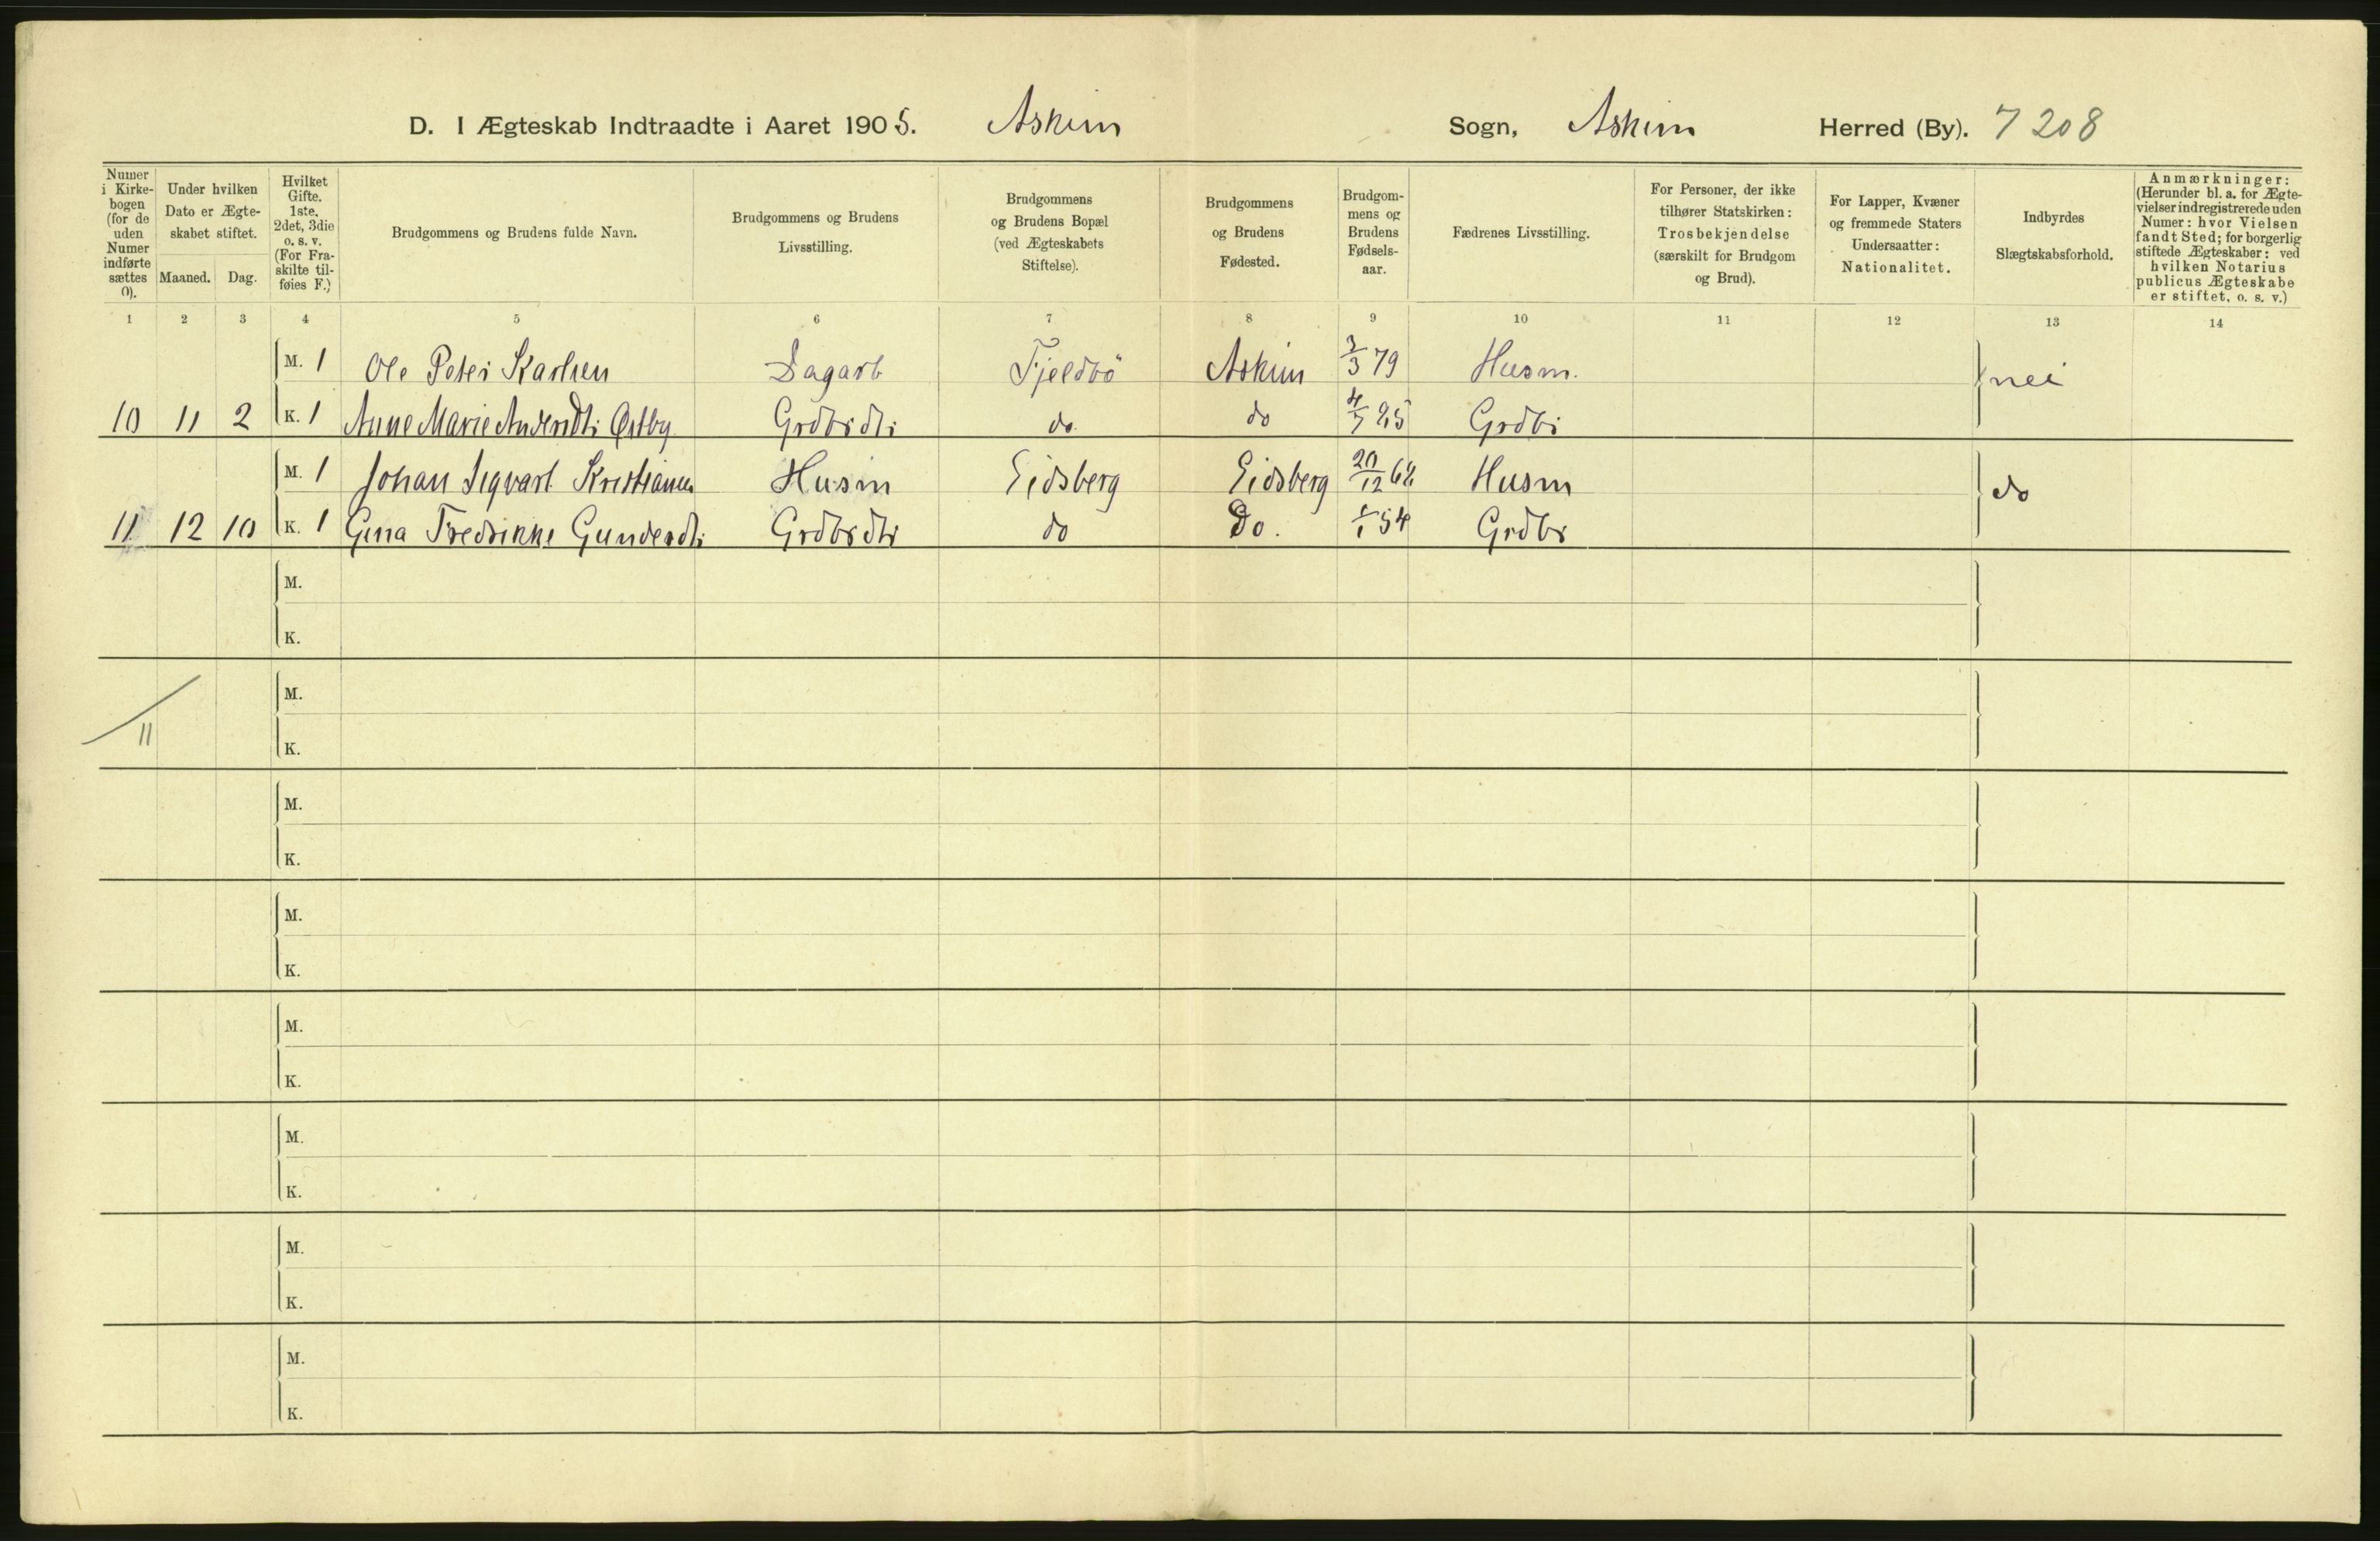 D. I Ægteskab Indtraadte i Aaret 1905. Askim Sogn, Askim Herred (By). 7 208
Numer i Kirkebogen (for de uden Numer indførte sættes 0).
Under hvilken Dato er Ægteskabet stiftet.
Maaned. Dag.
Hvilket Gifte. 1ste, 2det, 3die o. s. v. (For Fraskilte tilføies F.)
Brudgommens og Brudens fulde Navn.
Brudgommens og Brudens Livsstilling.
Brudgommens og Brudens Bopæl (ved Ægteskabets Stiftelse).
Brudgommens og Brudens Fødested.
Brudgommens og Brudens Fødselsaar.
Fædrenes Livsstilling.
For Personer, der ikke tilhører Statskirken: Trosbekjendelse (særskilt for Brudgom og Brud).
For Lapper, Kvæner og fremmede Staters Undersaatter: Nationalitet.
Indbyrdes Slægtskabsforhold.
Anmærkninger: (Herunder bl. a. for Ægtevielser indregistrerede uden Numer: hvor Vielsen fandt Sted; for borgerlig stiftede Ægteskaber: ved hvilken Notarius publicus Ægteskabe er stiftet, o. s. v.)
1 2 3 4 5 6 7 8 9 10 11 12 13 14
M. 1 Ole Peter Karlsen Dagarb Fjeldbö Askim 3/3 79 Husm. nei
10 11 2 K. 1 Anne Marie Andersdtr Østby Grdbrdtr do do Grdbr
M. 1 Johan Sigvart Kristiansen Husm Eidsberg Eidsberg Husm do
11 12 10 K. 1 Gina Fredrikke Gundersdtr Grdbrdtr do Do. 1/1 54 Grdbr
M.
K.
M.
11 K.
M.
K.
M.
K.
M.
K.
M.
K.
M.
K.
M.
K.